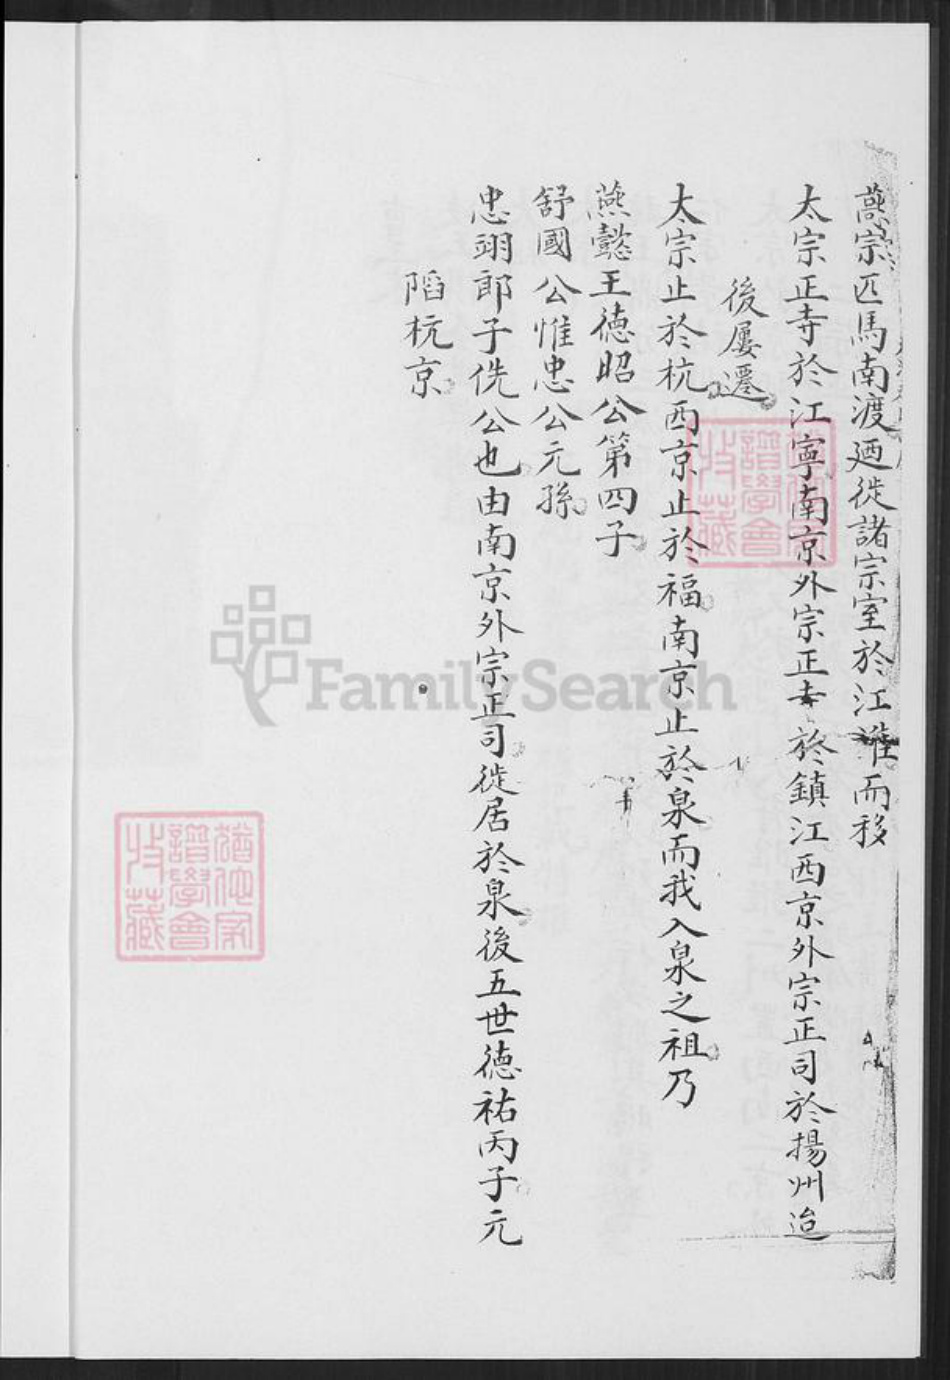 宗匹馬南渡廼徙諸宗室於江淮而移
太宗正寺於江寧南京外宗正寺於鎮江西京外宗正司於揚州迨
後屢遷
太宗止於杭西京止於福南京止於泉而我入泉之祖乃
燕懿王德昭公第四子
舒國公惟忠公元孫
忠翊郎子侁公也由南京外宗正司徙居於泉後五世德祐丙子元
陷杭京
譜學會
收藏
譜學會
收藏
FamilySearch